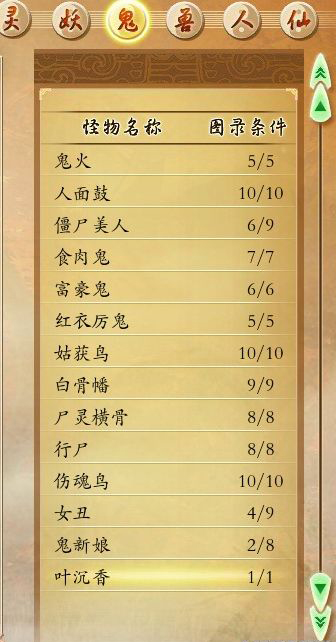 灵 妖 鬼 兽 人 仙
怪物名称 图录条件
鬼火 5/5
人面鼓 10/10
僵尸美人 6/9
食肉鬼 7/7
富豪鬼 6/6
红衣厉鬼 5/5
姑获鸟 10/10
白骨幡 9/9
尸灵横骨 8/8
行尸 8/8
伤魂鸟 10/10
女丑 4/9
鬼新娘 2/8
叶沉香 1/1